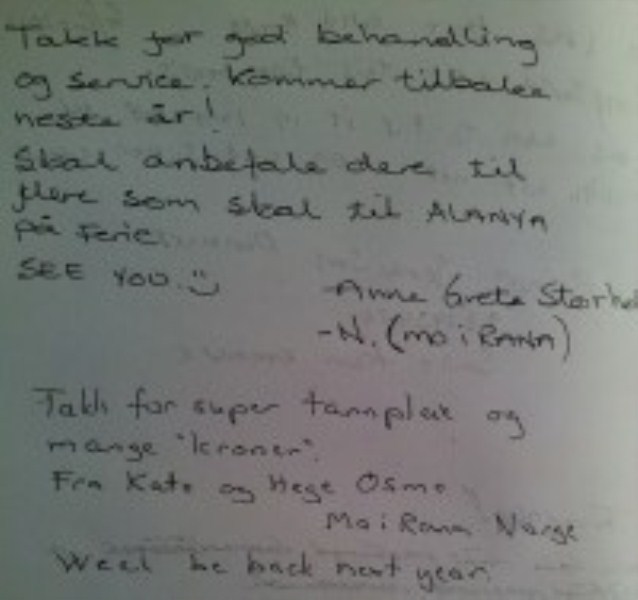 Takk for god behandling
og service. Kommer tilbake
neste år!
Skal anbefale dere til
flere som skal til ALANYA
på Ferie
SEE YOU. :)
-Anne Grete
-N. (mo i RANA)
Takk for super tannpleie og
mange "kroner".
Fra Kato og Hege Osmo
Mo i Rana Norge
Weel be back next year.